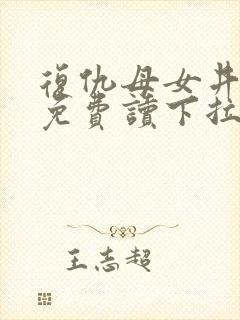 復仇母女丼
免費讀下拉
王志超